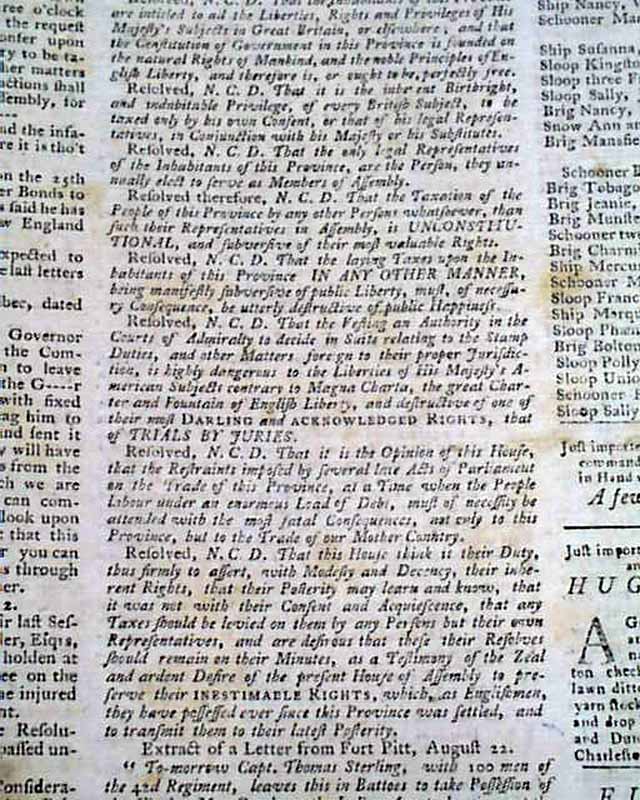 ree o'clock
the request
onfer upon
ry to be ta-
her matters
ctions shall
sembly, for
nd the infa-
re it is tho't
on the 25th
er Bonds to
s said he has
w England
xpected to
e last letters
bec, dated
Governor
the Com-
n to leave
the G----r
with fixed
ng him to
nd sent it
y will have
s from the
ch we are
can com-
look upon
that this
r you can
s through
er.
2.
ir last Ses-
ler, Esqrs,
holden at
ee on the
he injured
nt.
e Resolu-
passed un-
onsidera-
are intitled to all the Liberties, Rights and Privileges of His
Majesty's Subjects in Great Britain, or elsewhere, and that
the Constitution of Government in this Province is founded on
the natural Rights of Mankind, and the noble Principles of En-
glish Liberty, and therefore is, or ought to be, perfectly free.
Resolved, N. C. D. That it is the inherent Birthright,
and indubitable Privilege, of every British Subject, to be
taxed only by his own Consent, or that of his legal Represen-
tatives, in Conjunction with his Majesty or his Substitutes.
Resolved, N. C. D. That the only legal Representatives
of the Inhabitants of this Province, are the Person, they an-
nually elect to serve as Members of Assembly.
Resolved therefore, N. C. D. That the Taxation of the
People of this Province by any other Persons whatsoever, than
such their Representatives in Assembly, is UNCONSTITU-
TIONAL, and subversive of their most valuable Rights.
Resolved, N. C. D. That the laying Taxes upon the In-
habitants of this Province IN ANY OTHER MANNER,
being manifestly subversive of public Liberty, must, of necessa-
ry Consequence, be utterly destructive of public Happiness.
Resolved, N. C. D. That the Vesting an Authority in the
Courts of Admiralty to decide in Suits relating to the Stamp
Duties, and other Matters foreign to their proper Jurisdic-
tion, is highly dangerous to the Liberties of His Majesty's A-
merican Subjects contrary to Magna Charta, the great Char-
ter and Fountain of English Liberty, and destructive of one of
their most DARLING and ACKNOWLEDGED RIGHTS, that
of TRIALS BY JURIES.
Resolved, N. C. D. That it is the Opinion of this House,
that the Restraints imposed by several late Acts of Parliament
on the Trade of this Province, at a Time when the People
Labour under an enormous Load of Debt, must of necessity be
attended with the most fatal Consequences, not only to this
Province, but to the Trade of our Mother Country.
Resolved, N. C. D. That this House think it their Duty,
thus firmly to assert, with Modesty and Decency, their inhe-
rent Rights, that their Posterity may learn and know, that
it was not with their Consent and Acquiescence, that any
Taxes should be levied on them by any Persons but their own
Representatives, and are desirous that these their Resolves
should remain on their Minutes, as a Testimony of the Zeal
and ardent Desire of the present House of Assembly to pre-
serve their INESTIMABLE RIGHTS, which, as Englishmen,
they have possessed ever since this Province was settled, and
to transmit them to their latest Posterity.
Extract of a Letter from Fort Pitt, August 22.
" To-morrow Capt. Thomas Sterling, with 100 men of
the 42d Regiment, leaves this in Battoes to take Possession of
Ship Nancy,
Schooner Ma
Ship Susanna
Sloop Kingsto
Sloop three F
Sloop Sally,
Brig Nancy,
Snow Ann an
Brig Mansfie
Schooner B
Brig Tobago
Brig Jeanie,
Brig Munste
Schooner two
Brig Charm
Ship Mercu
Schooner M
Sloop Franc
Ship Marqu
Sloop Phœn
Brig Bolton
Sloop Polly
Sloop Unio
Schooner
Sloop Sally
Just importe
command
in Hand
A few
Just import
an
HUG
A G
ton check
lawn ditto
yarn stock
and drop
and Dun
Charlesto